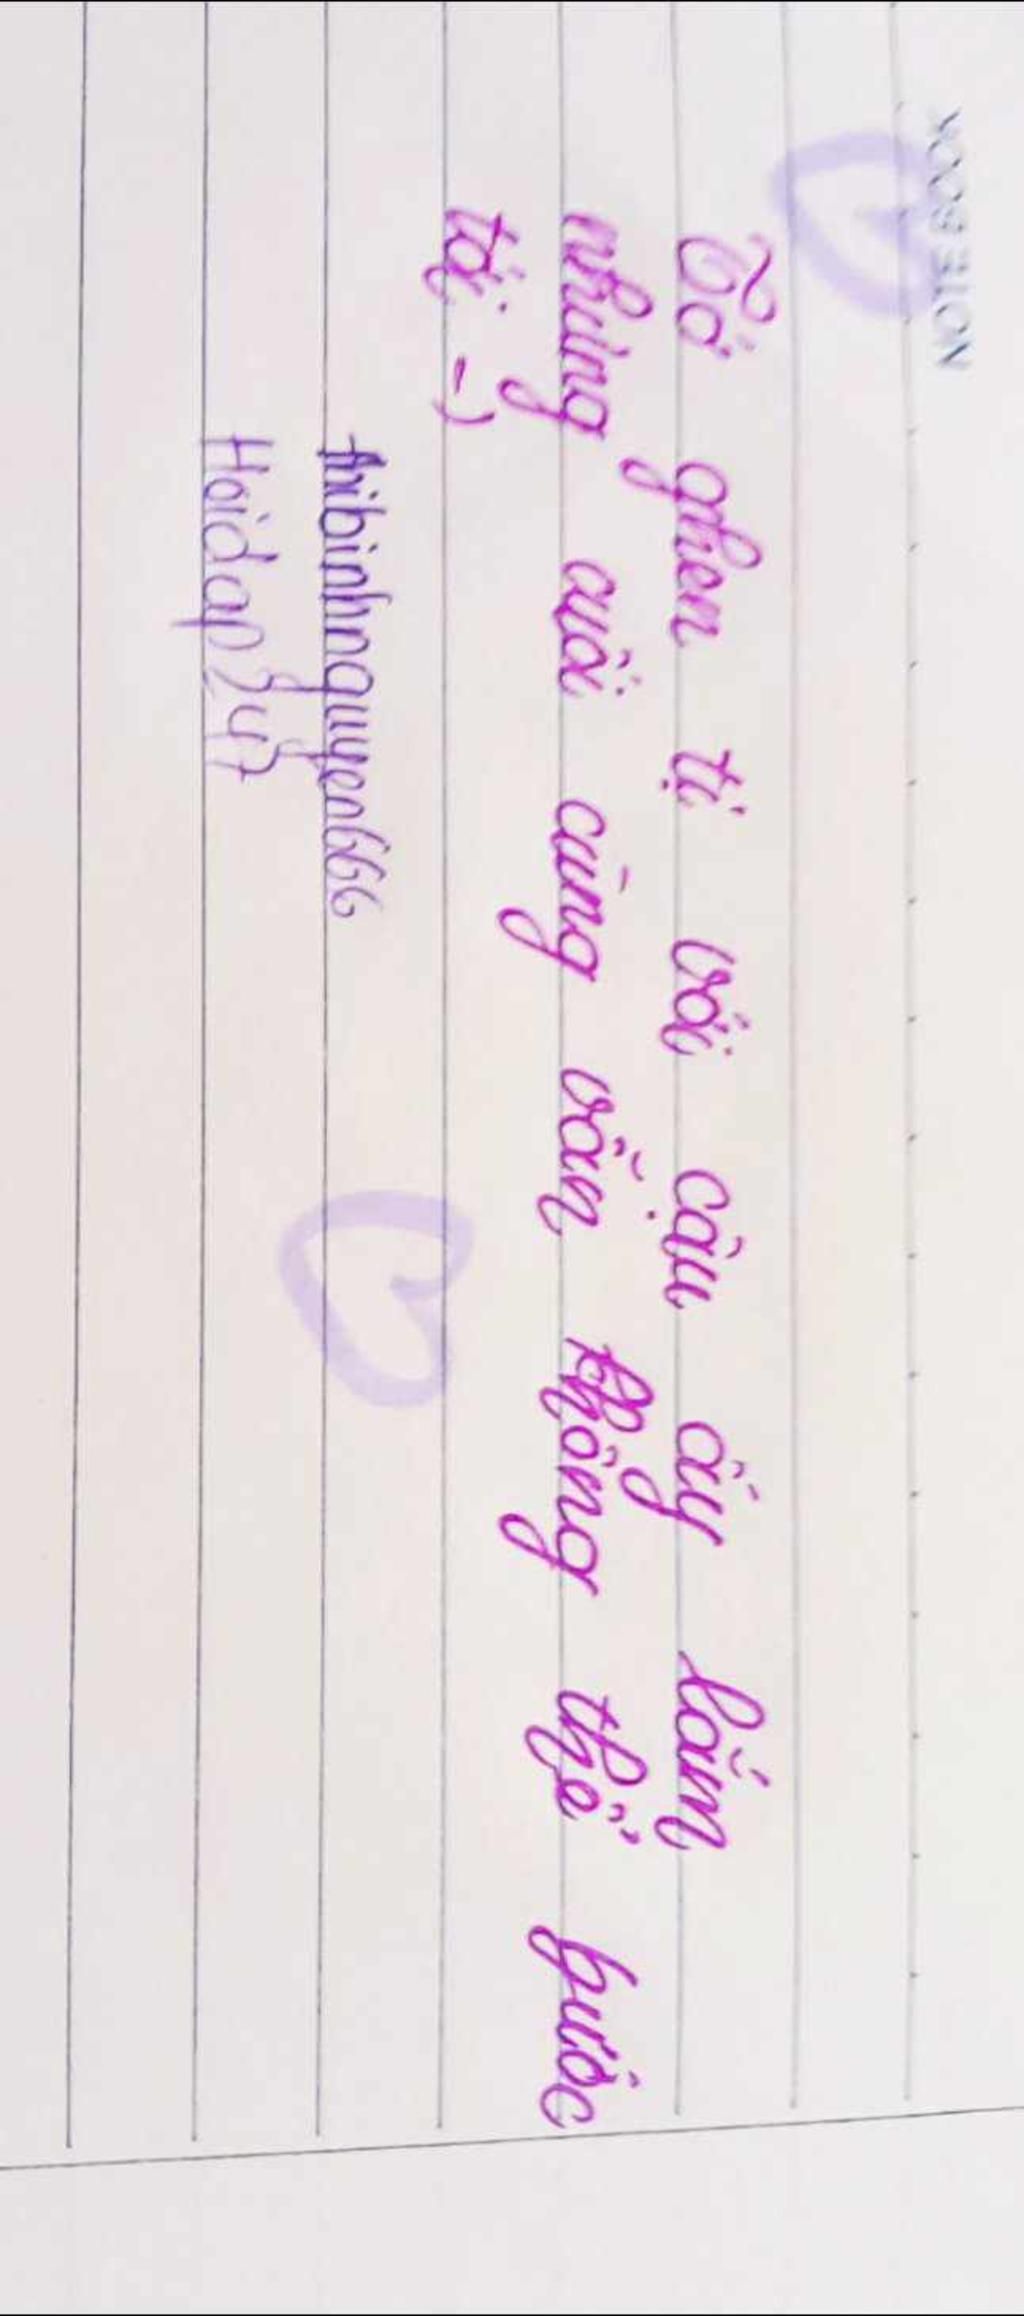 NOTE BOOK
Tớ ghen tị với cậu ấy lắm
nhưng cuối cùng vẫn không thể bước
tới -)
thibinhnguyen666
Hoidap247